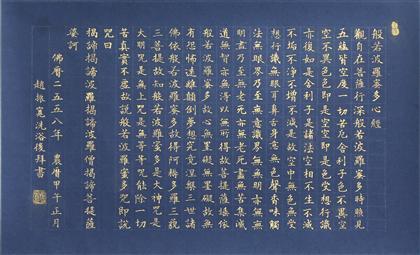 般若波羅蜜多心經
觀自在菩薩行深般若波羅蜜多時照見
五蘊皆空度一切苦厄舍利子色不異空
空不異色色即是空空即是色受想行識
亦復如是舍利子是諸法空相不生不滅
不垢不淨不增不減是故空中無色無受
想行識無眼耳鼻舌身意無色聲香味觸
法無眼界乃至無意識界無無明亦無無
明盡乃至無老死亦無老死盡無苦集滅
道無智亦無得以無所得故菩提薩埵依
般若波羅蜜多故心無罣礙無罣礙故無
有恐怖遠離顛倒夢想究竟涅槃三世諸
佛依般若波羅蜜多故得阿耨多羅三藐
三菩提故知般若波羅蜜多是大神咒是
大明咒是無上咒是無等等咒能除一切
苦真實不虛故說般若波羅蜜多咒即說
咒曰
揭諦揭諦波羅揭諦波羅僧揭諦菩提薩
婆訶
佛曆二五五八年 農曆甲午正月
洗浴後拜書